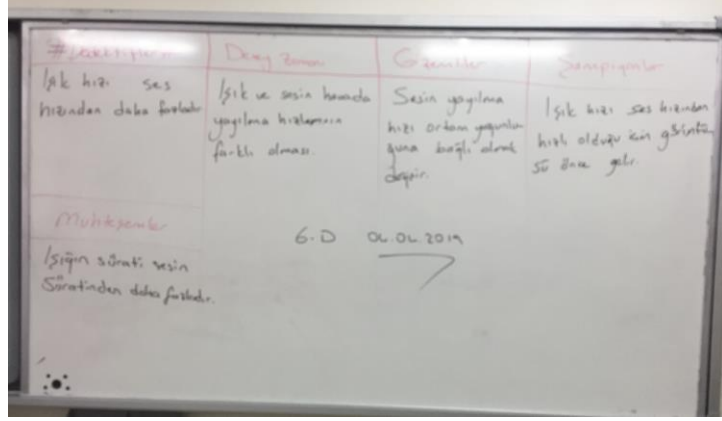 Deney Zamanı
Işık hızı ses
hızından daha fazladır
Işık ve sesin havada
yayılma hızlarının
farklı olması.
Sesin yayılma
hızı ortam yoğunlu-
ğuna bağlı olarak
değişir.
Şampiyonlar
Işık hızı ses hızından
hızlı olduğu için görüntü
sü önce gelir.
Muhteşemler
Işığın sürati sesin
Süratinden daha fazladır.
6.D 04.04.2019